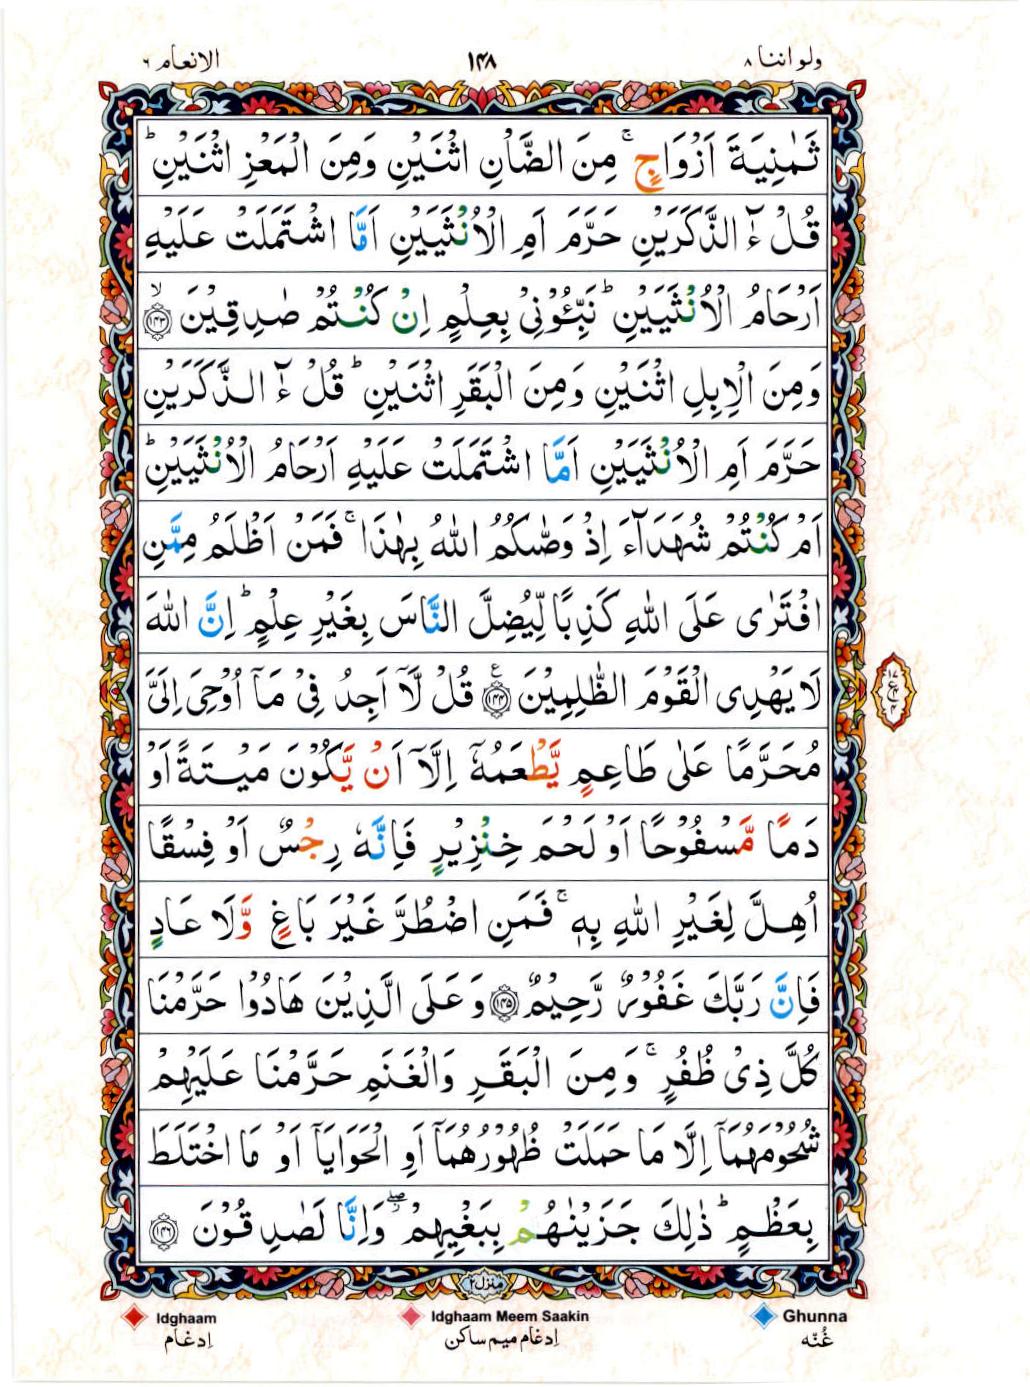 ولو اننا ٨
١٤٨
الانعام ٦
ثَمٰنِيَةَ اَزْوَاجٍ ۚ مِنَ الضَّاْنِ اثْنَيْنِ وَمِنَ الْمَعْزِ اثْنَيْنِ ؕ
قُلْ ءٰٓ الذَّكَرَيْنِ حَرَّمَ اَمِ الْاُنْثَيَيْنِ اَمَّا اشْتَمَلَتْ عَلَيْهِ
اَرْحَامُ الْاُنْثَيَيْنِ ؕ نَبِّـُٔوْنِيْ بِعِلْمٍ اِنْ كُنْتُمْ صٰدِقِيْنَ ۙ ﴿١٤٣﴾
وَمِنَ الْاِبِلِ اثْنَيْنِ وَمِنَ الْبَقَرِ اثْنَيْنِ ؕ قُلْ ءٰٓ الذَّكَرَيْنِ
حَرَّمَ اَمِ الْاُنْثَيَيْنِ اَمَّا اشْتَمَلَتْ عَلَيْهِ اَرْحَامُ الْاُنْثَيَيْنِ ؕ
اَمْ كُنْتُمْ شُهَدَآءَ اِذْ وَصّٰىكُمُ اللّٰهُ بِهٰذَا ۚ فَمَنْ اَظْلَمُ مِمَّنِ
افْتَرٰى عَلَى اللّٰهِ كَذِبًا لِّيُضِلَّ النَّاسَ بِغَيْرِ عِلْمٍ ؕ اِنَّ اللّٰهَ
لَا يَهْدِى الْقَوْمَ الظّٰلِمِيْنَ ﴿١٤٤﴾ ع قُلْ لَّاۤ اَجِدُ فِيْ مَاۤ اُوْحِيَ اِلَيَّ
مُحَرَّمًا عَلٰى طَاعِمٍ يَّطْعَمُهٗۤ اِلَّاۤ اَنْ يَّكُوْنَ مَيْتَةً اَوْ
دَمًا مَّسْفُوْحًا اَوْ لَحْمَ خِنْزِيْرٍ فَاِنَّهٗ رِجْسٌ اَوْ فِسْقًا
اُهِلَّ لِغَيْرِ اللّٰهِ بِهٖ ۚ فَمَنِ اضْطُرَّ غَيْرَ بَاغٍ وَّلَا عَادٍ
فَاِنَّ رَبَّكَ غَفُوْرٌ رَّحِيْمٌ ﴿١٤٥﴾ وَعَلَى الَّذِيْنَ هَادُوْا حَرَّمْنَا
كُلَّ ذِيْ ظُفُرٍ ۚ وَمِنَ الْبَقَرِ وَالْغَنَمِ حَرَّمْنَا عَلَيْهِمْ
شُحُوْمَهُمَاۤ اِلَّا مَا حَمَلَتْ ظُهُوْرُهُمَاۤ اَوِ الْحَوَايَاۤ اَوْ مَا اخْتَلَطَ
بِعَظْمٍ ؕ ذٰلِكَ جَزَيْنٰهُمْ بِبَغْيِهِمْ ۖ وَاِنَّا لَصٰدِقُوْنَ ﴿١٤٦﴾
منزل ٢
Idghaam
Idghaam Meem Saakin
Ghunna
اِدغام
اِدغام میم ساکن
غُنّه